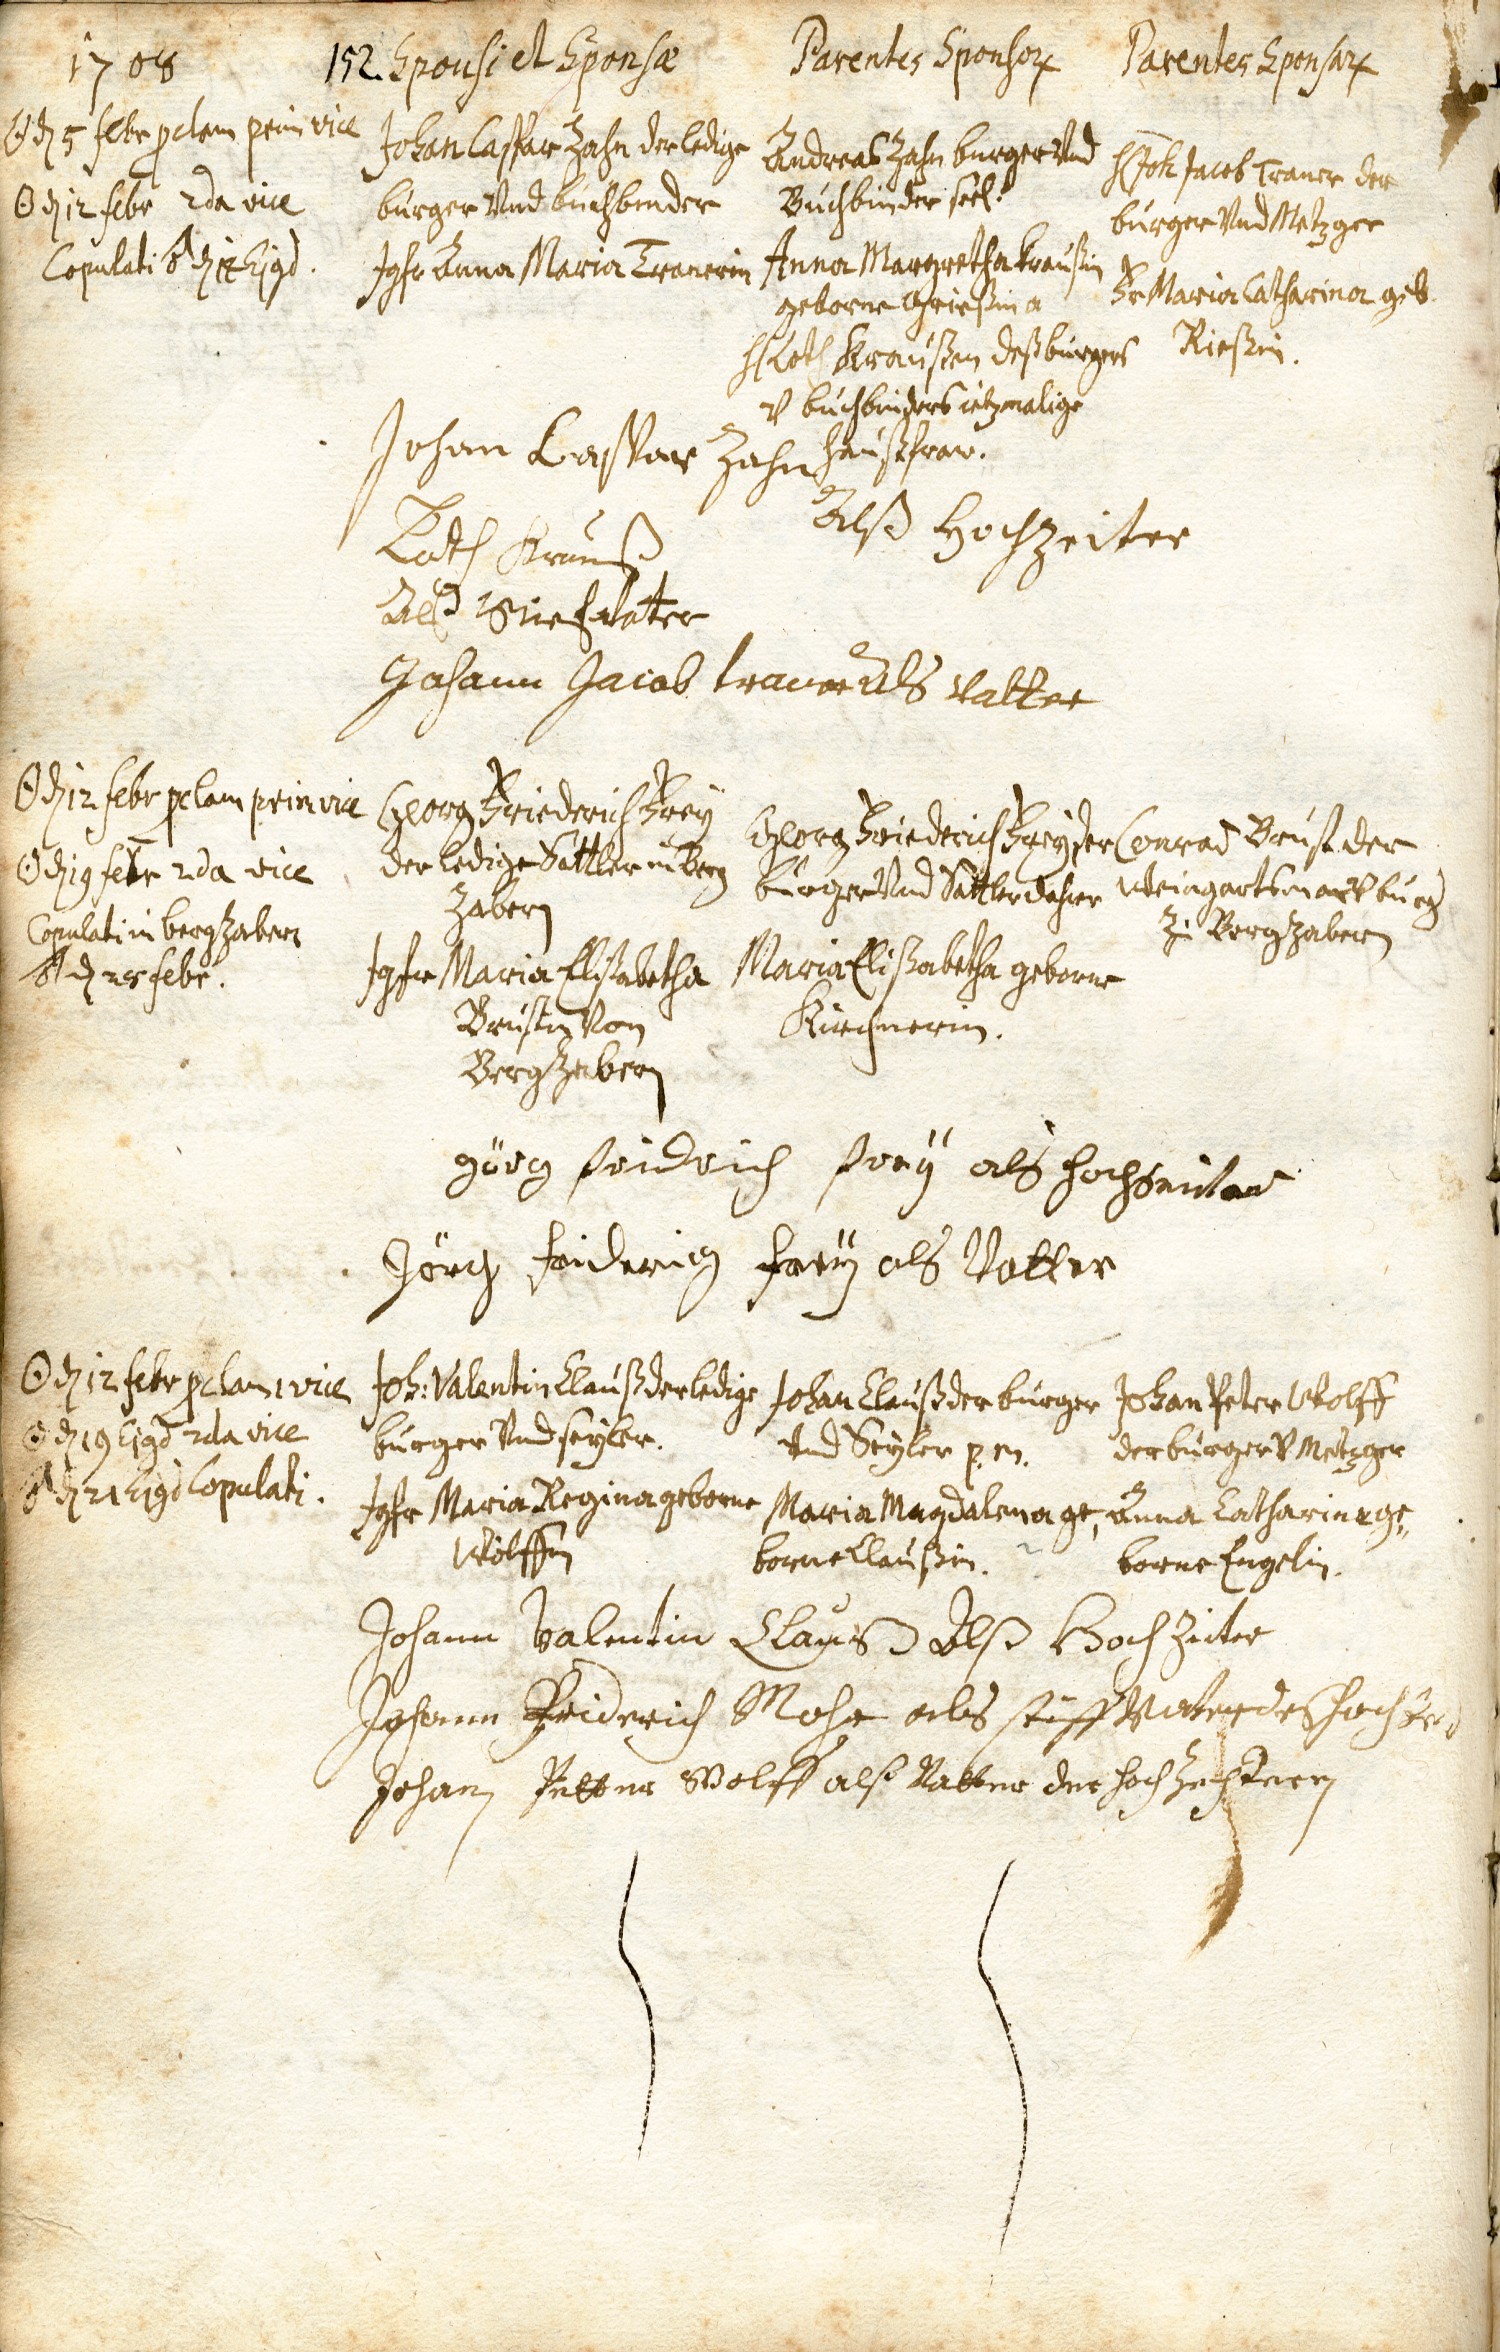 1708
152. Sponsi et Sponsæ
Parentes Sponsor
Parentes Sponsar
☉ d 5 febr pclam prim vice
☉ d 12 febr 2da vice
Copulati ♂ d 14 Ejgd.
Johan Caspar Zahn der ledige
burger Vnd buchbinder
Jgfr Anna Maria Tranerin
Andreas Zahn burger Vnd
Buchbinder seel.
Anna Margretha Kraußin
geborne Grießin
H Loth Kraußen deß burgers
V buchbinders ietzmalige
haußfraw.
H Joh Jacob Traner der
burger Vnd Metzger
Fr Maria Catharina geb.
Rießin.
Johan Caspar Zahn
Alß Hochzeiter
Loth Krauß
Alß Stiefvater
Johann Jacob traner Als Vatter
☉ d 12 febr pclam prim vice
☉ d 19 febr 2da vice
Copulati in bergzabern
♂ d 28 febr.
Georg Friederich Frey
der ledige Sattler in Berg
Zabern
Jgfr Maria Elisabetha
Brustin Von
Bergzabern
Georg Friederich Frey der
burger Vnd Sattler daher
Maria Elisabetha geborne
Kirchnerin.
Conrad Brust der
Weingartsman V burg
Zu Bergzabern
görg fridrich freÿ als hochzeiter
Jörg friderich freÿ als Vatter
☉ d 12 febr pclam 1 vice
☉ d 19 Ejgd 2da vice
♂ d 21 Ejgd Copulati.
Joh: Valentin Clauß der ledige
burger Vnd seyler.
Jgfr Maria Regina geborne
Wolffin
Johan Clauß der burger
Vnd Seyler p. m.
Maria Magdalena ge,
borne Claußin.
Johan Peter Wolff
der burger V Metzger
Anna Catharina ge,,
borne Engelin.
Johann Valentin Clauß Alß Hochziter
Johann Friderich Mohr als stiff Vater des
Johan Petter Wolff alß Vatter der hochzeiteren